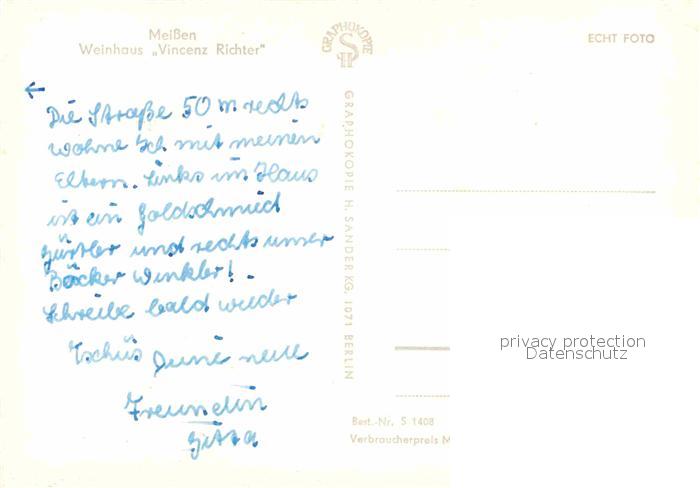 Meißen
Weinhaus „Vincenz Richter"
GRAPHOKOPIE
H S
ECHT FOTO
←
Die Straße 50 m rechts
wohne Ich mit meinen
Eltern. Links im Haus
ist ein Goldschmied
Gürtler und rechts unser
Bäcker Winkler! -
Schreibe bald wieder
Tschüs Deine neue
Freundin
Gitta
GRAPHOKOPIE H. SANDER KG. 1071 BERLIN
privacy protection
Datenschutz
Best.-Nr. S 1408
Verbraucherpreis M